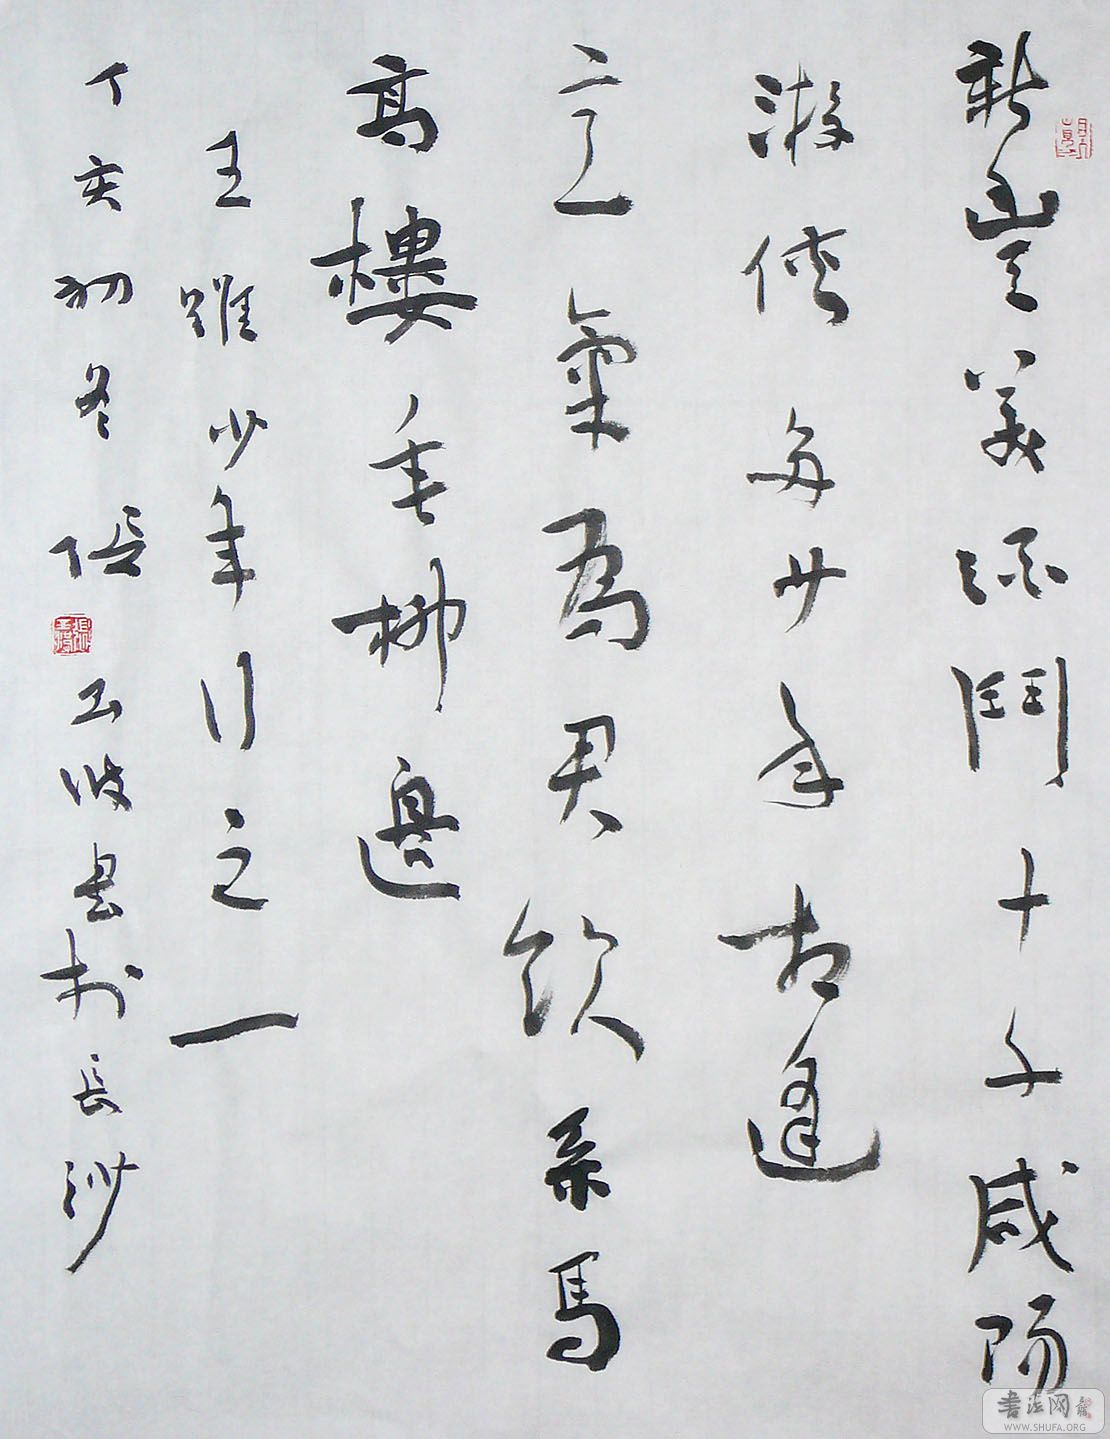 新豐美酒鬥十千咸陽
游俠多少年相逢
意氣為君飲系馬
高樓垂柳邊
王維少年行之一
丁亥初冬張玉波書於長沙
書法网
WWW.SHUFA.ORG